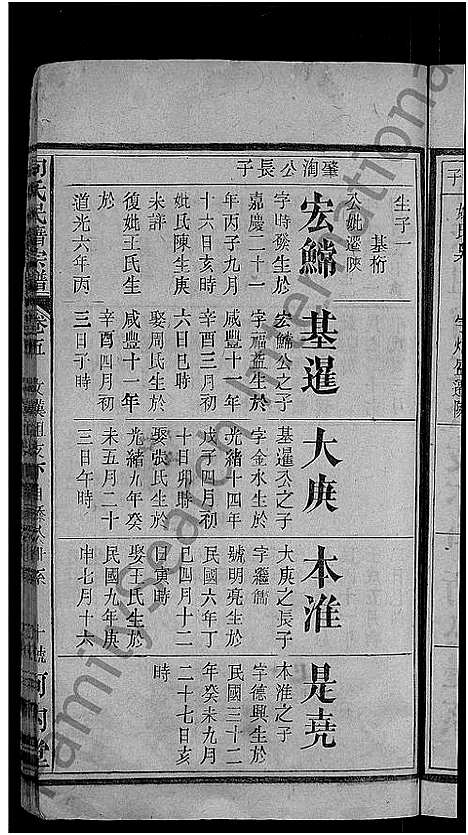 生子一
基桁
公妣遷陝
肇洵公長子
宏鱂
字時發生於
嘉慶二十一
年丙子九月
十六日亥時
妣氏陳生庚
未詳
復妣王氏生
於
道光六年丙
基暹
宏鱂公之子
字福益生於
咸豐十一年
辛酉三月初
六日巳時
娶周氏生於
咸豐十一年
辛酉四月初
三日子時
大庚
基暹公之子
字金水生於
光緒十四年
戊子四月初
十日卯時
娶張氏生於
光緒九年癸
未五月二十
三日午時
本淮
大庚之長子
字繼儒
號明亮生於
民國六年丁
巳四月十二
日寅時
娶王氏生於
民國九年庚
申七月十六
是堯
本淮之子
字德興生於
民國三十二
年癸未九月
二十七日亥
時
何氏民譜宗譜
卷五
FamilySearch International